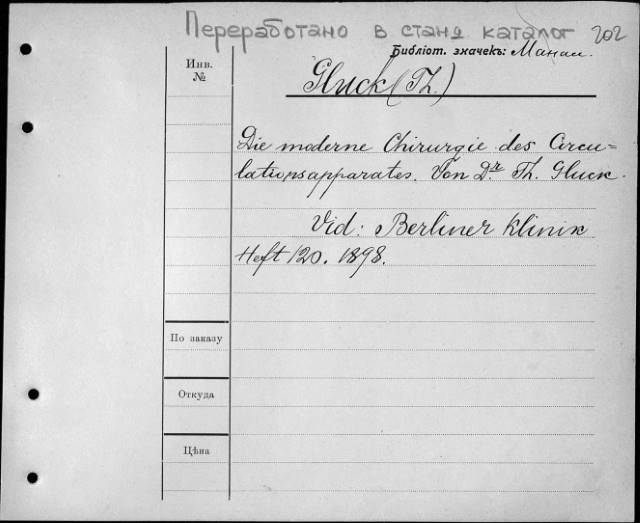 Переработано в станд каталог 202
Библіот. значекъ:
Инв.
№
Gluck (Th.)
Die moderne Chirurgie des Circu=
lationsapparates. Von Dr. Th. Gluck.
Vid: Berliner Klinik
Heft 120. 1898.
По заказу
Откуда
Цѣна